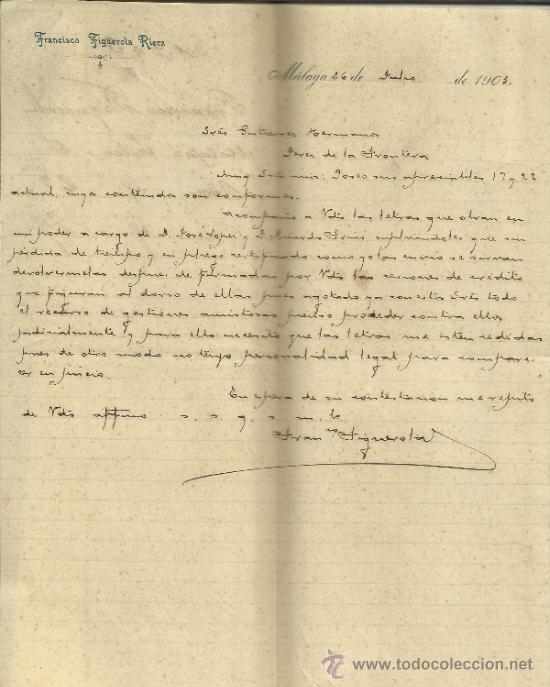 Francisco Figuerola Riera
Málaga 26 de Julio de 1903.
Sres Gutierrez Hermanos
Jerez de la Frontera
Muy Sres mios: Poseo sus apreciables 17 y 22
actual, cuyo contenido son conformes.
Acompaño a Vds las letras que obran en
mi poder a cargo de D. José Lopez y D. suplicandoles que sin
pérdida de tiempo y en pliego certificado como yo las envio se sirvan
devolvermelas despues de firmadas por Vds las cesiones de crédito
que figuran al dorso de ellas pues agotado ya con estos Sres todo
el recurso de gestiones amistosas preciso proceder contra ellos
judicialmente y para ello necesito que las letras me esten cedidas
pues de otro modo no tengo personalidad legal para compare-
cer en juicio.
En espera de su contestacion me repito
de Vds affmo s. s. q. s. m. b.
Franco Figuerola
todocoleccion
www.todocoleccion.net